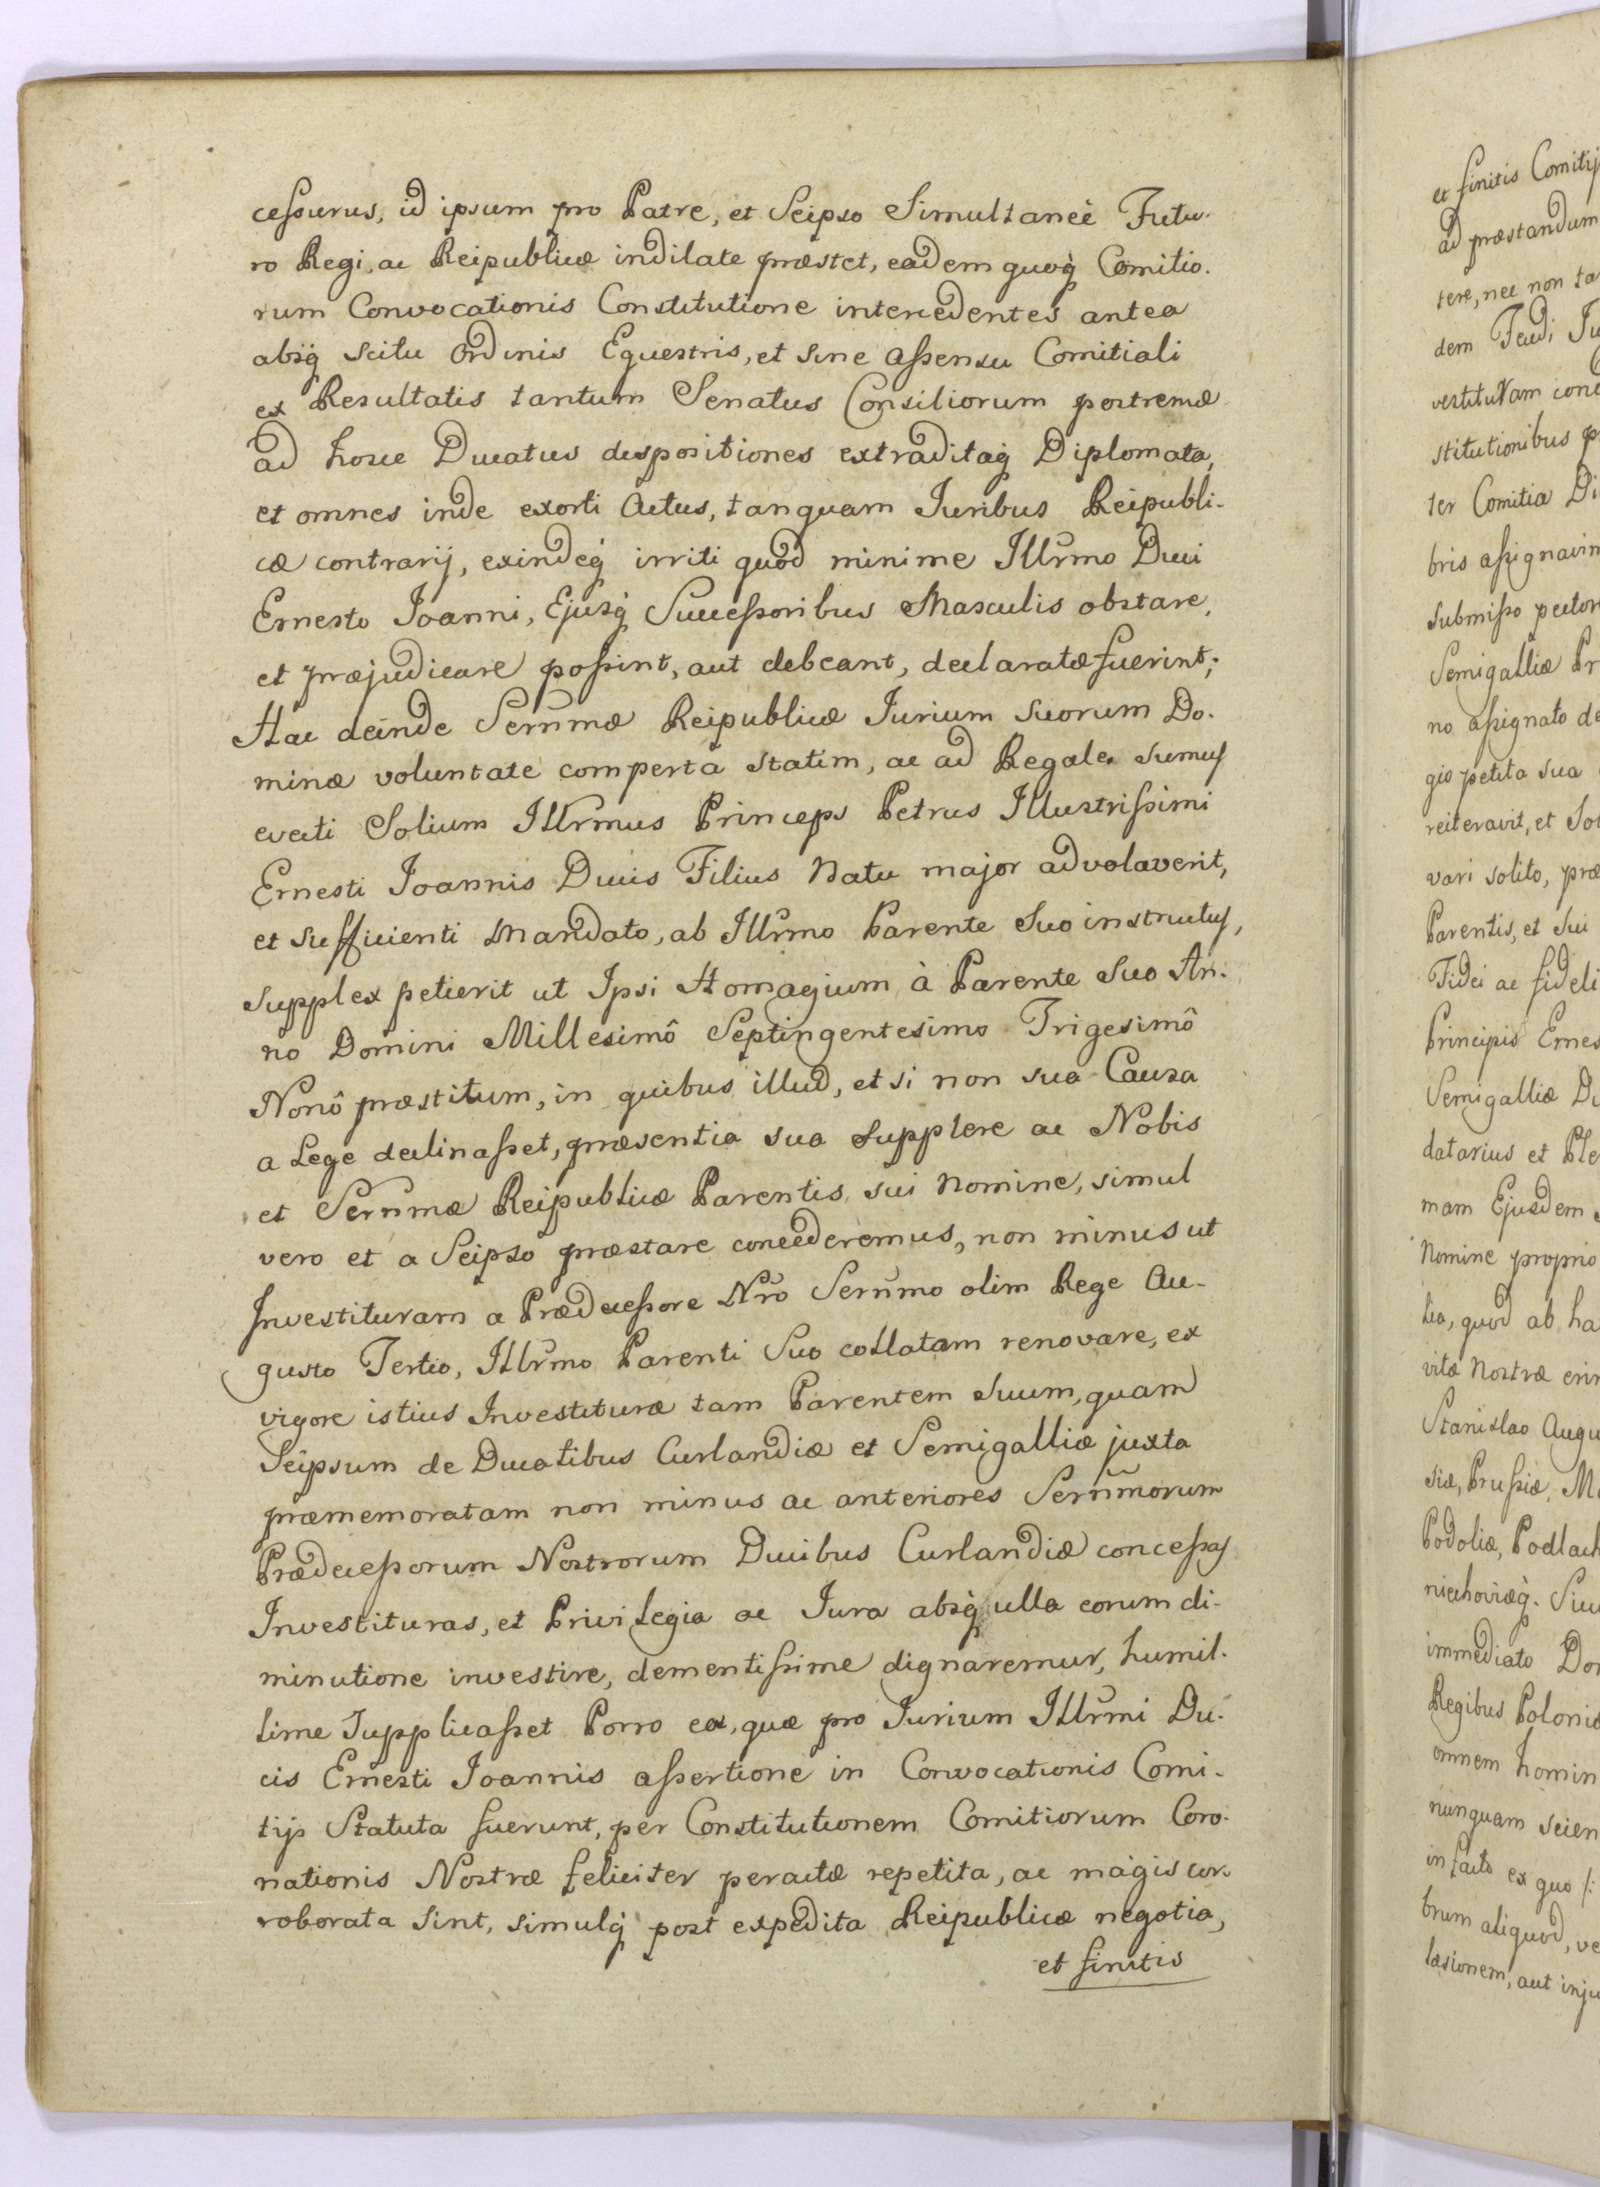 cessurus, id ipsum pro Patre, et Seipso Simultaneè Futu-
ro Regi, ac Reipublicæ indilate præstet, eadem quoq́ Comitio-
rum Convocationis Constitutione intercedentes antea
absq́ scitu Ordinis Equestris, et sine assensu Comitiali
ex Resultatis tantum Senatus Consiliorum postremæ
ad hosce Ducatus dispositiones extraditaq́ Diplomata,
et omnes inde exorti Actus, tanquam Juribus Reipubli-
cæ contrarij, exindeq́ irriti quod minime Illr̃mo Duci
Ernesto Joanni, Ejusq́ Successoribus Masculis obstare,
et præjudicare possint, aut debeant, declaratæ fuerint;
Hac deinde Serñmæ Reipublicæ Jurium suorum Do-
minæ voluntate comperta statim, ac ad Regale sumus
evecti Solium Illr̃mus Princeps Petrus Illustrissimi
Ernesti Joannis Ducis Filius Natu major advolaverit,
et sufficienti Mandato, ab Illr̃mo Parente Suo instructus,
supplex petierit ut Ipsi Homagium à Parente Suo An-
no Domini Millesimô Septingentesimo Trigesimô
Nonô præstitum, in quibus illud, etsi non sua Causa
a Lege declinasset, præsentia sua supplere ac Nobis
et Serñmæ Reipublicæ Parentis sui Nomine, simul
vero et a Seipso præstare concederemus, non minus ut
Investituram a Prædecessore Nr̃o Serñmo olim Rege Au-
gusto Tertio, Illr̃mo Parenti Suo collatam renovare, ex
vigore istius Investituræ tam Parentem Suum, quam
Seipsum de Ducatibus Curlandiæ et Semigalliæ juxta
præmemoratam non minus ac anteriores Serñmorum
Prædecessorum Nostrorum Ducibus Curlandiæ concessas
Investituras, et Privilegia ac Jura absq́ ulla eorum di-
minutione investire, clementissime dignaremur, humil-
lime supplicasset Porro ea, quæ pro Jurium Illr̃mi Du-
cis Ernesti Joannis assertione in Convocationis Comi-
tijs Statuta fuerunt, per Constitutionem Comitiorum Coro-
nationis Nostræ feliciter peractæ repetita, ac magis cor-
roborata sint, simulq́ post expedita Reipublicæ negotia,
et finitis
et finitis Comitij
ad præstandum
tere, nec non ta
dem Feudi Ju
vestituram conc
stitutionibus p
ter Comitia Di
bris assignavim
submisso pector
Semigalliæ Pr
no assignato de
gio petita sua
reiteravit, et Sol
vari solito, præ
Parentis, et Sui
Fidei ac fideli
Principis Ernes
Semigalliæ Du
datarius et Ple
mam Ejusdem
Nomine proprio
lia, quod ab ha
vitæ Nostræ
Stanislao Augu
siæ, Prussiæ, Ma
Podoliæ, Podlach
niechoviæq́. Suc
immediato Dom
Regibus Poloniæ
omnem homin
nunquam scien
in facto ex quo
brum aliquod, ve
læsionem, aut inju